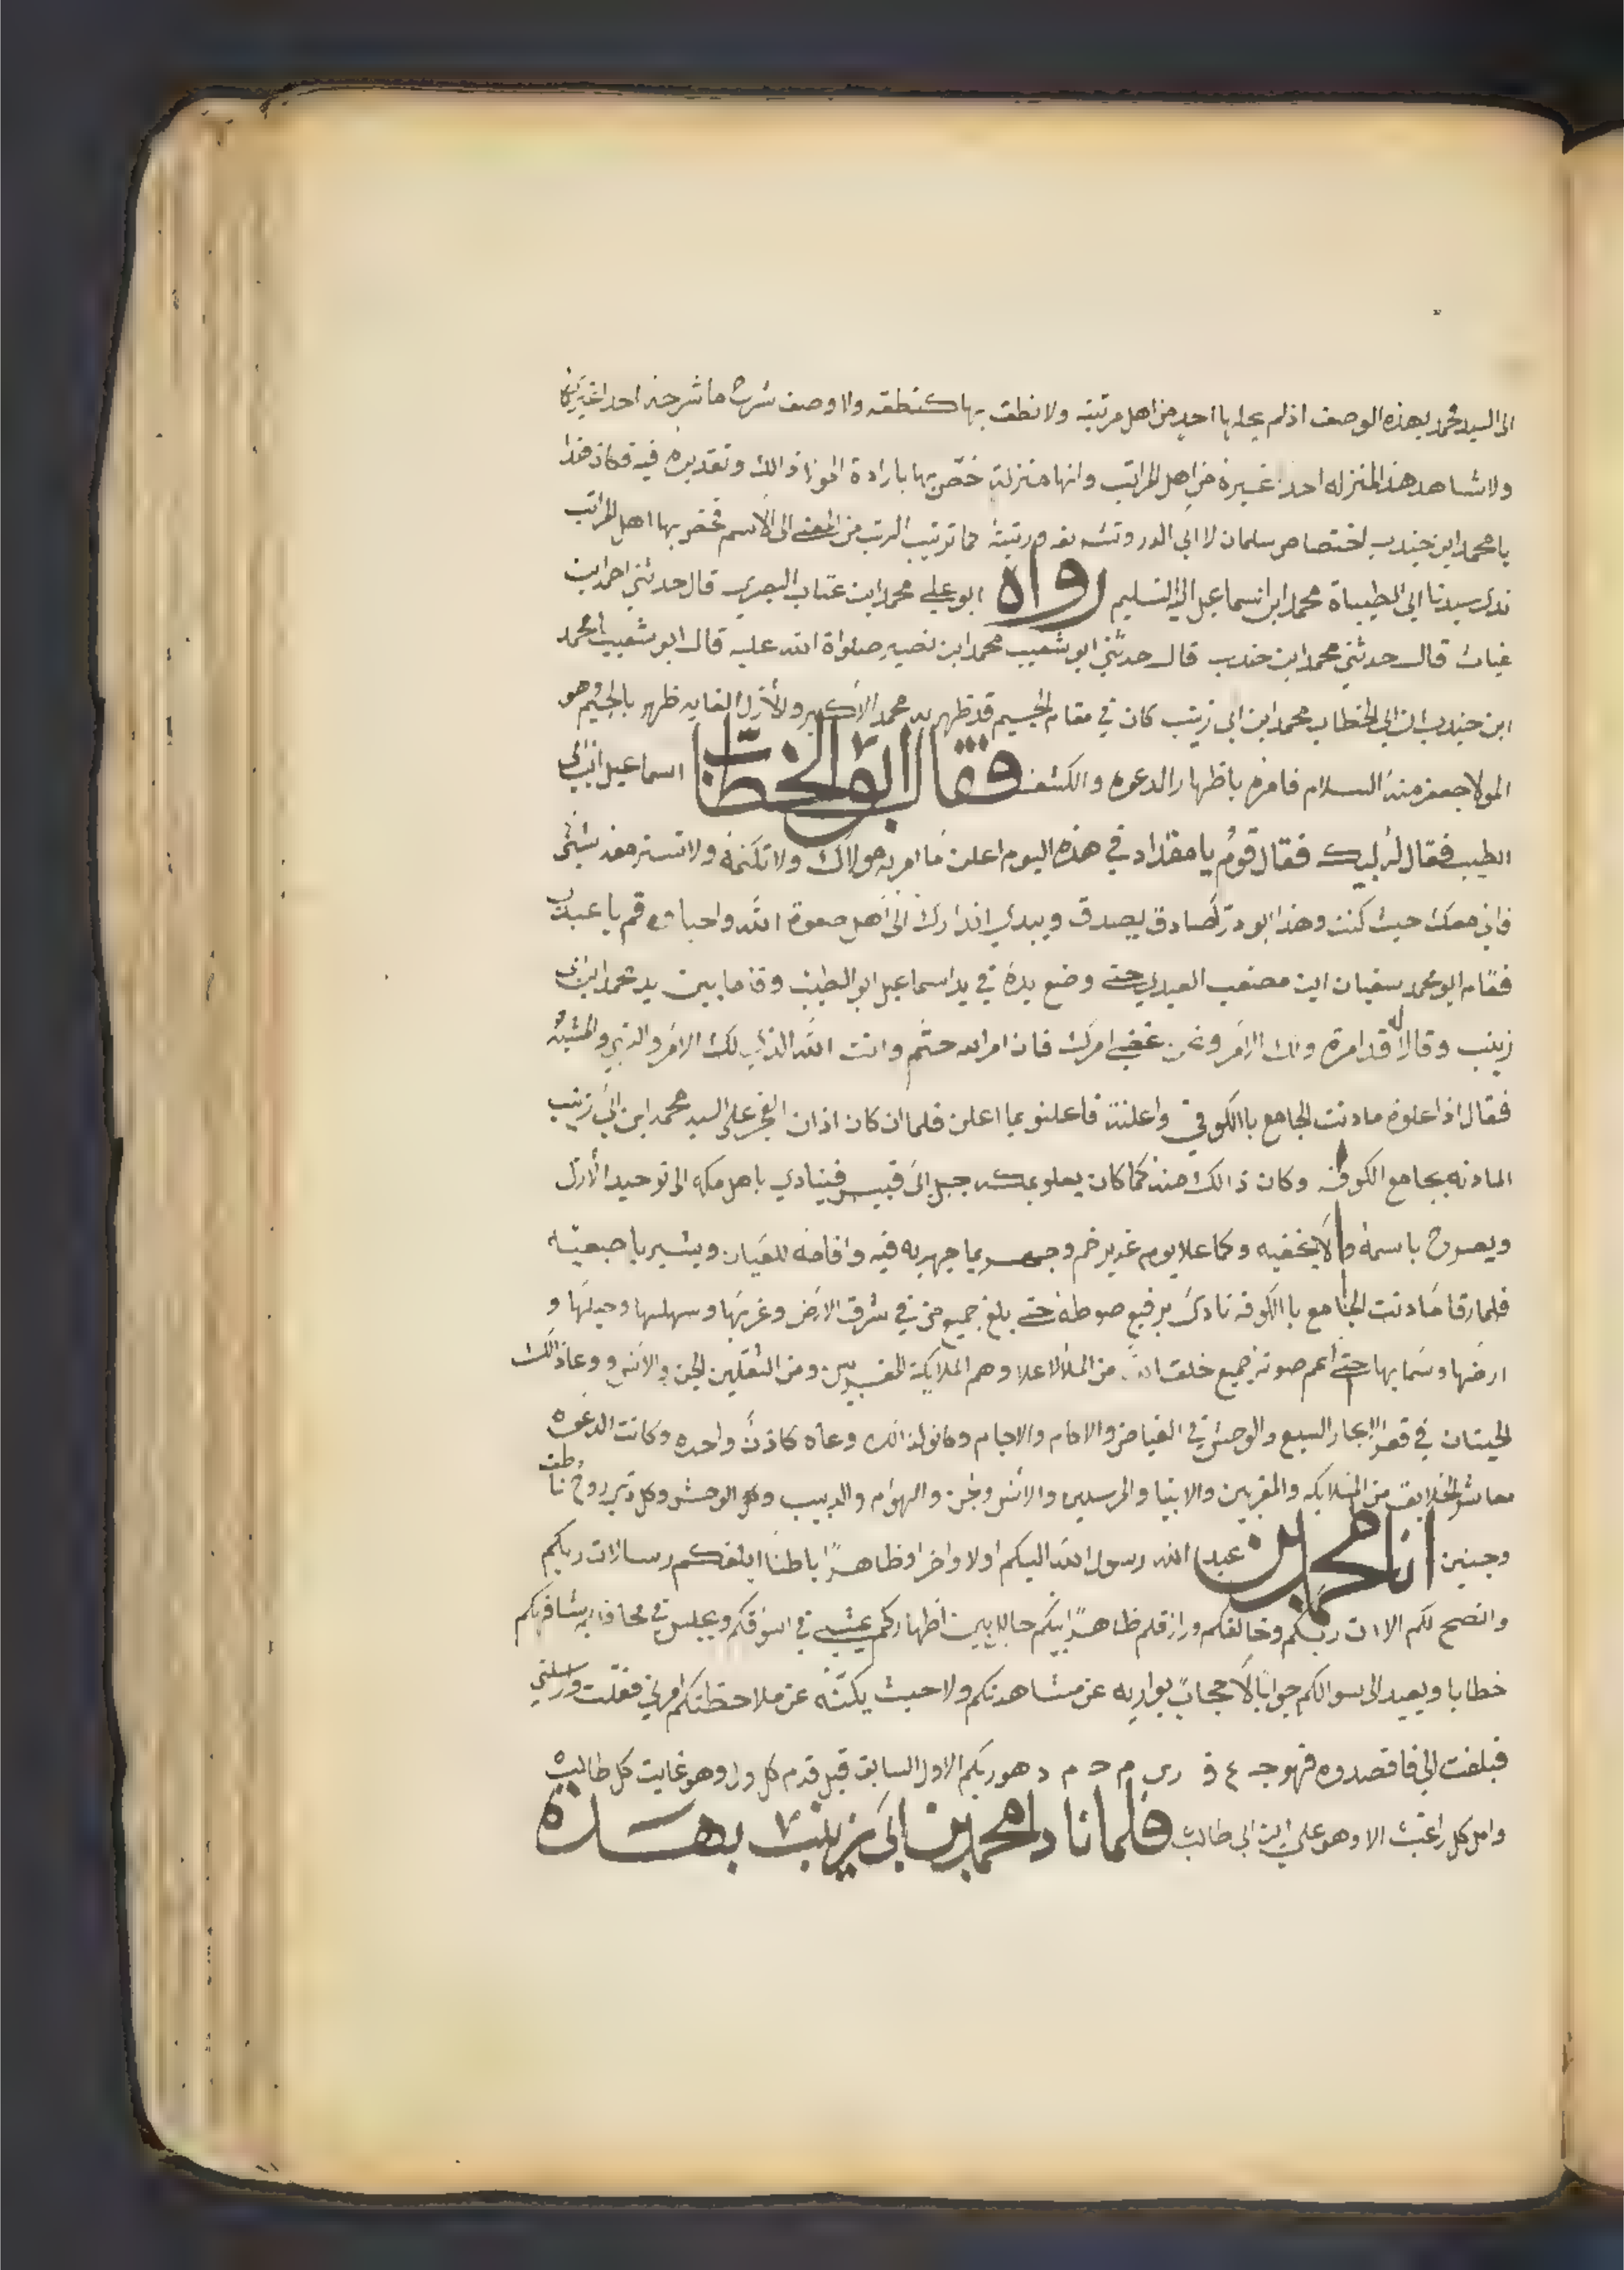 الى السيد محمد بهذه الوصف اذلم يحلها احد من اهل مرتبته ولا نطق بها كنطقه ولا وصف شرف ما شرحه احد غيره
ولا شاهد هذ المنزله احد غيره من اهل المراتب وانها منزلة خصّ بها بارادة المولا ذالك وتقديره فيه فكان هذا
يا محمد ابن جندب اختصاص سلمان لا ابي الدر ورتبته كما ترتيب الرتب من المعنى الى الاسم اهل المراتب
سيدنا ابي الطيباة محمد ابن اسماعيل اليه التسليم رواه ابو علي محمد ابن عتاب البصري قال حدثني احمد ابن
غياث قال حدثني محمد ابن جندب قال حدثني ابو شعيب محمد ابن نصير صلواة الله عليه قال ابو شعيب يا محمد
ابن جندب ان ابي الخطاب محمد ابن ابي زينب كان في مقام الجسيم قد ظهر به محمد الاكبر ظهر بالجسم وهو
المولا جعفر منه السلام فامره باظهار الدعوه والكشف فقال ابو الخطاب اسماعيل ابن ابي
الطيب فقال له لبيك فقال قوم يا مقداد في هذه اليوم اعلن ما امر به مولاك ولا تكتمه ولا تستر معه شيئ
فاني معك حيث كنت وهذا ابو در صادق يصدق ويبدي اندارك الى اهل صفوة الله واحباوه قم يا
فقام ابو محمد سفيان ابن مصعب العبدي حتى وضع يده في يد اسماعيل ابو الطيب وقاما بين يد محمد ابن ابي
زينب وقالا له قد امرة ولك الامر ونحن نمضي امرك فان امر الله حتم وانت الله الذي لك الامر والنهي والمشيئه
فقال اذا علوة مادنت الجامع باالكوفة واعلنت فاعلنو بما اعلن فلما ان كان اذان الفجر على السيد محمد ابن ابي زينب
المادنه بجامع الكوفه وكان ذالك منه كما كان يعلو بمكه جبل ابي قبيس فينادي ياهل مكه الى توحيد الازل
ويصرح باسمه ولا يخفيه وكما علا يوم غدير خم وجهر بما جهر به فيه واقامه للعيان ويشير باصبعيه
فلما رقا مادنت الجامع باالكوفه نادى برفيع صوطه حتى بلغ جميع من في شرق الارض وغربها وسهلها وجبلها و
ارضها وسمايها حتى اعم صوته جميع خلق الله من الملا الاعلا وهم الملايكة المقربين ومن الثقلين الجن والانس ووعا ذالك
الحيتان في قعر البحار السبع والوحش في الغياض والاكام والاجام وكانو لذالك وعاه كاذن واحده وكانت الدعوه
معاشر الخلايق من الملايكه والمقربين والانبيا والمرسلين والانس وجن والهوام والدبيب وكل الوحش وكل دي روح ناطق
وجنين انا محمد ابن عبد الله رسول الله اليكم اولا واخر اوظاهراً اباطنا ابلغكم رسالات ربكم
وانصح لكم الا ان ربكم وخالقكم ورازقكم ظاهراً بينكم يمشي في اسواقكم ويجلس في محافلكم يشافهكم
خطابا ويعيد الى سوالكم جواباً لا حجاب يواريه عن مشاهدتكم ولا حيث يكنه عن ملاحظتكم امرني ففعلت وارسلني
فبلغت الي فاقصدوه فهو جـ ع ف ر ى م ح م د هو ربكم الاول السابق قبل قدم كل ول وهو غايت كل طالب
وامل كل راغب الا وهو علي ابن ابي طالب فلما نادا محمد بن ابي زينب بهـذه